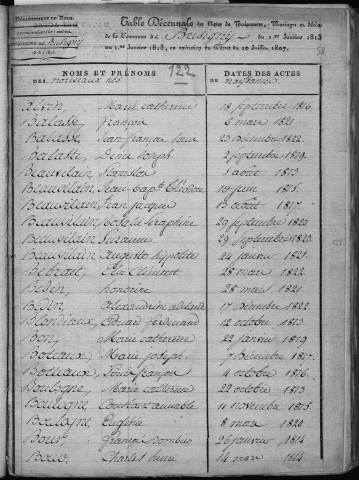 Département du Nord.
Table Décennale des Actes de Naissances, Mariages et décès
de la Commune de Busigny du 1.er Janvier 1813
au 1.er Janvier 1823, en exécution du Décret du 20 Juillet 1807.
Busigny
58
122
NOMS ET PRÉNOMS
DES nouveaux nés
DATES DES ACTES
DE naissance
Marie catherine 18 septembre 1816.
Balasse, françois 6 mars 1821.
Balasse, Jean françois Louis 23 décembre 1822.
Balasse, Denis Joseph 2 septembre 1819.
Beauvilain, Stanislas 1 août 1813.
Beauvilain, Jean Bap.te théodore juin 1815.
Beauvilain, Jean Jacques août 1817.
Beauvilain, Séraphine 29 septembre 1820
Beauvilain, Suzanne 29 septembre 1820.
Beauvilain, auguste hipolite 24 janvier 1821.
Clément 28 mars 1822.
honorine 28 mars 1821.
alexandrine adelaide 17 décembre 1822.
Blondiaux, Edouard ferdinand 12 octobre 1813
Bon, Marie catherine 22 janvier 1819
Boteaux, Marie Joseph 7 décembre 1817.
Louis françois 4 octobre 1816.
Boulogne, Marie catherine 22 octobre 1813
Boulogne, Constant aimable 11 novembre 1813.
Boulogne, Eugénie 8 mars 1820
Bour, françois 26 janvier 1814
Bour, Charles henri 14 mars